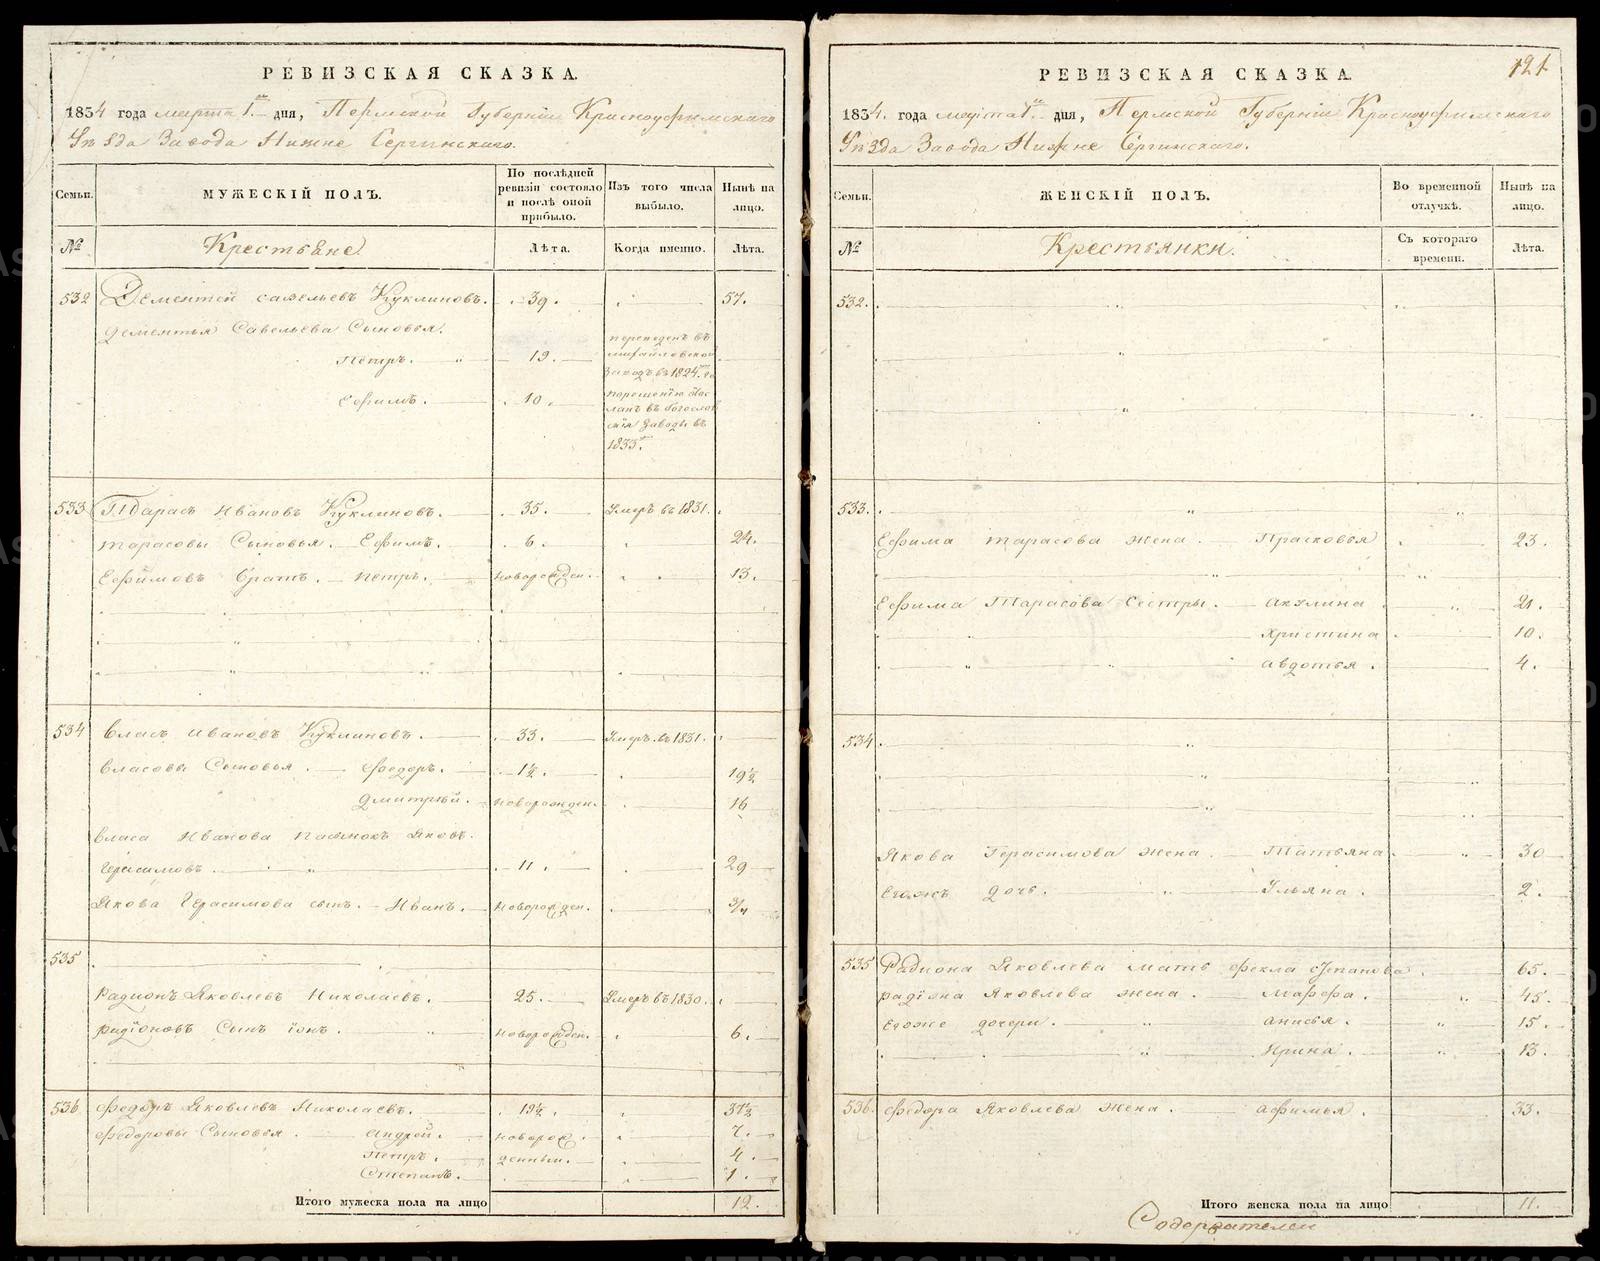 РЕВИЗСКАЯ СКАЗКА.
1834 года марта 1го дня, Пермской Губернiи Красноуфимскаго
Уѣзда Завода Нижне Сергинскаго.
Семьи.
МУЖЕСКIЙ ПОЛЪ.
По послѣдней ревизiи состояло и послѣ оной прибыло.
Изъ того числа выбыло.
Нынѣ на лицо.
№
Крестьяне
Лѣта.
Когда именно.
Лѣта.
532 Дементей савельевъ Куклиновъ. 39. 57.
Дементья Савельева Сыновья.
Петръ. 19. переведенъ въ
заводъ въ 1824.
Ефимъ. 10.
заводы въ
1833.
533 Тарасъ Ивановъ Куклиновъ. 35. Умеръ въ 1831.
тарасовы Сыновья. Ефимъ. 6. 24.
Ефимовъ братъ. Петръ. новорожден. 13.
534 Власъ Ивановъ Куклиновъ. 33. Умеръ въ 1831.
Власовы Сыновья. Федоръ. 1½. 19½
Дмитрiй. новорожден. 16
Власа Иванова пасынокъ Яковъ.
Герасимовъ. 11. 29
Якова Герасимова сынъ. Иванъ. новорожден. 3/4
535
Радионъ Яковлевъ Николаевъ. 25. Умеръ въ 1830.
радiоновъ Сынъ iонъ. новорожден. 6.
536 Федоръ Яковлевъ Николаевъ. 19½. 37½
Федоровы Сыновья. Андрей. новорож. 7.
Петръ. денным. 4.
Степанъ. 1.
Итого мужеска пола на лицо 12.
121
РЕВИЗСКАЯ СКАЗКА.
1834. года марта 1го дня, Пермской Губернiи Красноуфимскаго
Уѣзда Завода Нижне Сергинскаго.
Семьи.
ЖЕНСКIЙ ПОЛЪ.
Во временной отлучкѣ.
Нынѣ на лицо.
№
Крестьянки.
Съ котораго времени.
Лѣта.
532.
533.
Ефима тарасова жена. Прасковья 23.
Ефима Тарасова Сестры. акулина 21.
христина 10.
авдотья. 4.
534.
Якова Герасимова жена. Татьяна 30
Егожъ дочь. Ульяна. 2.
535 Радиона Яковлева мать Фекла Степанова 65.
радiона Яковлева жена. марфа. 45.
Егоже дочери. анисья. 15.
Ирина. 13.
536. Федора Яковлева жена. афимья. 33.
Итого женска пола на лицо 11.
Содержателей